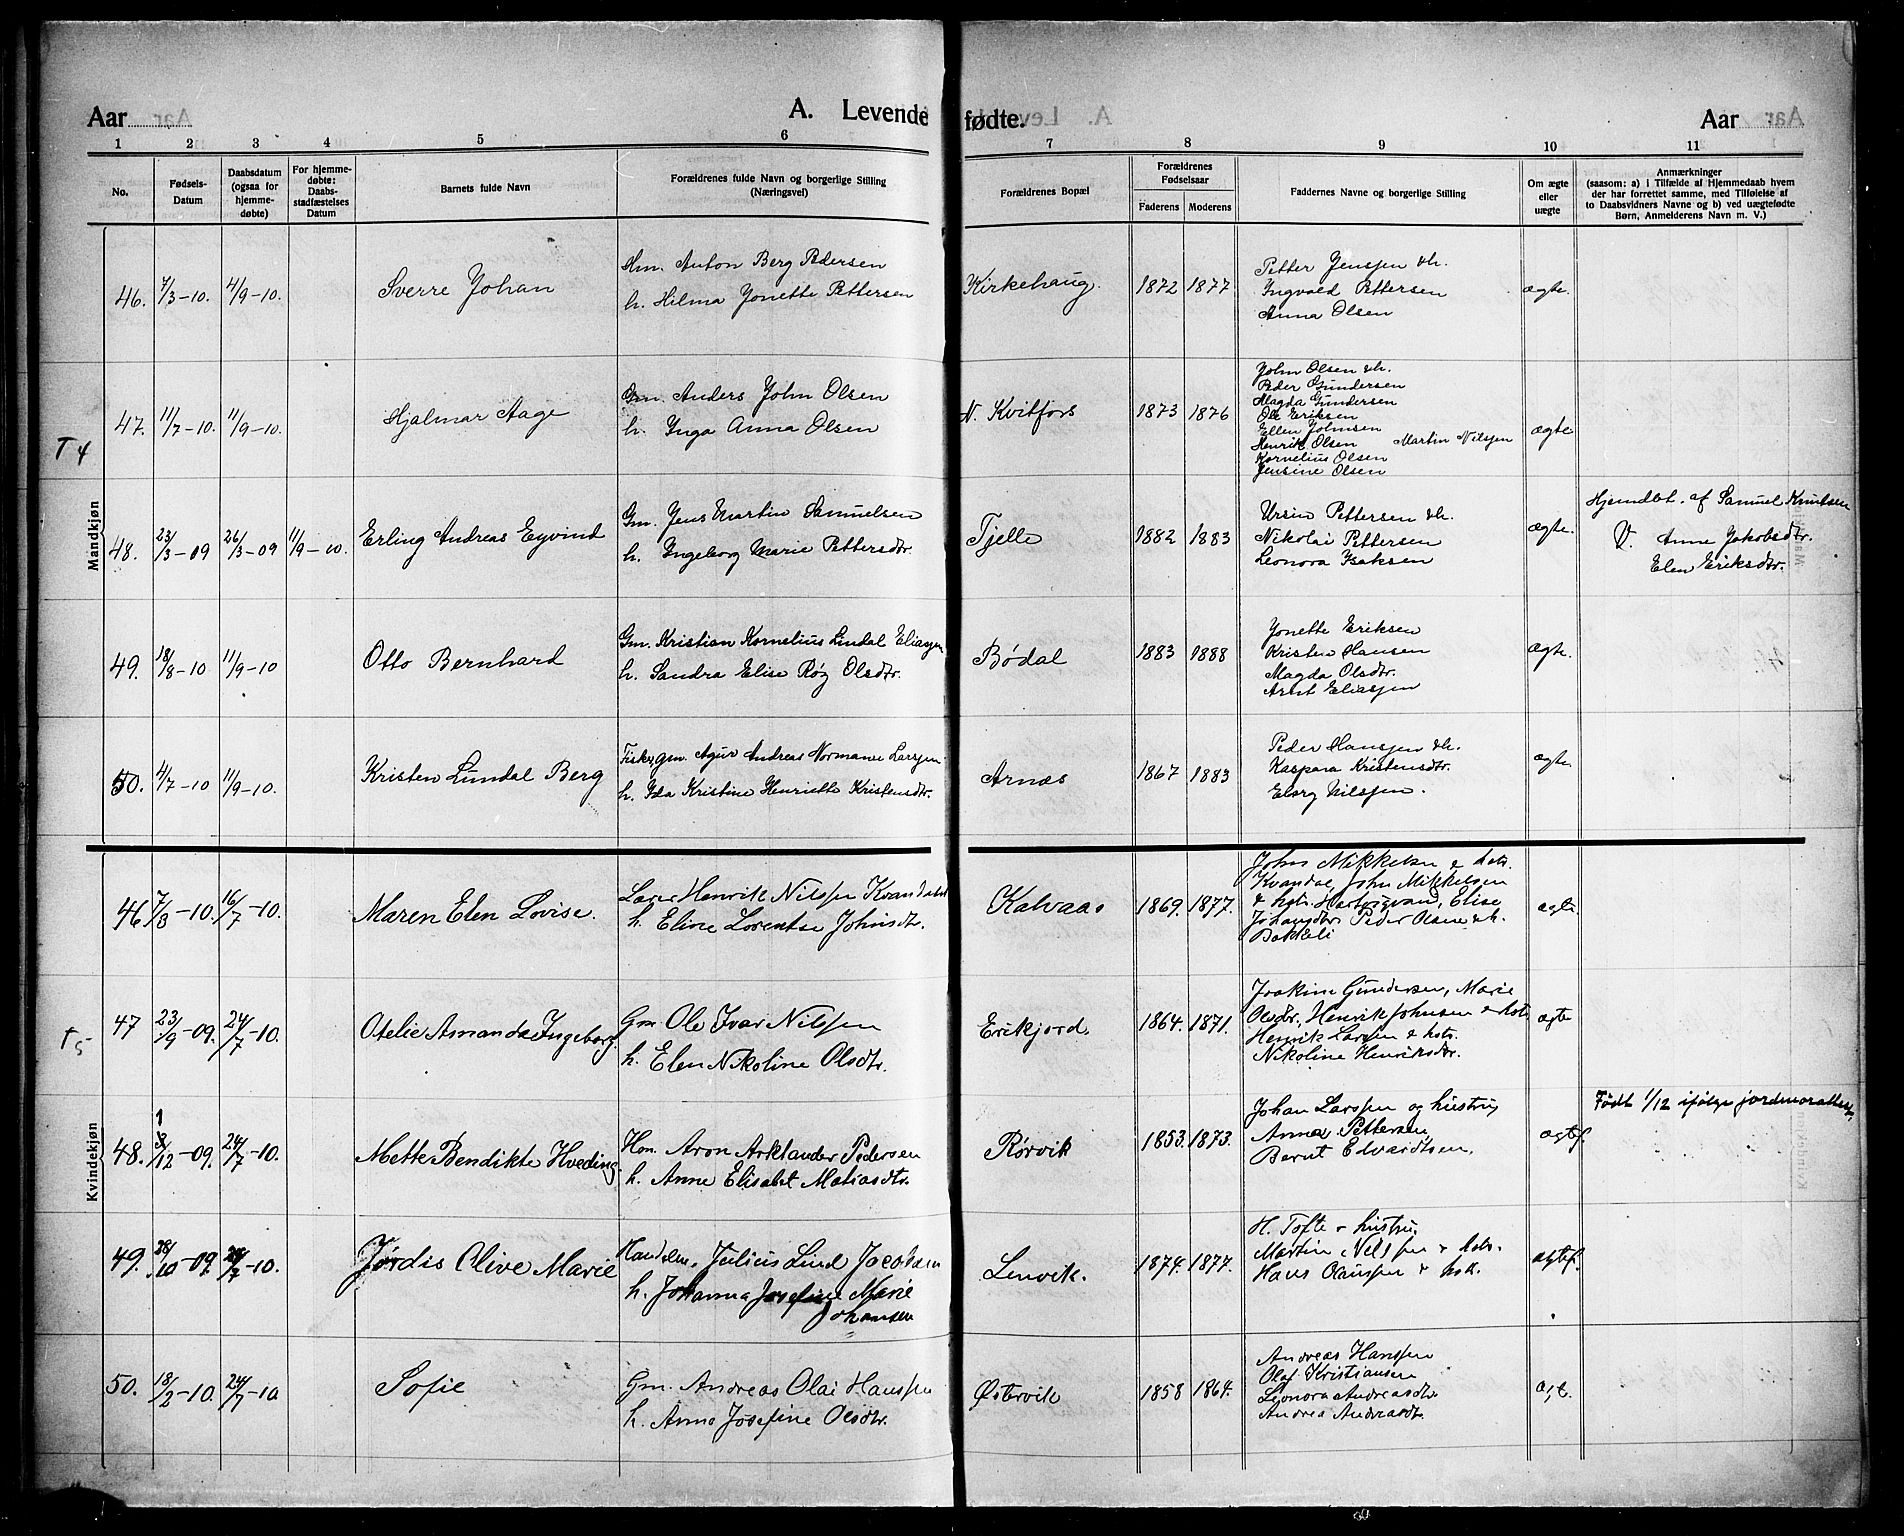 Aar
A. Levende
fødte.
Aar
1 2 3 4 5 6 7 8 9 10 11
No.
Fødsels-
Datum
Daabsdatum
(ogsaa for
hjemme-
døbte)
For hjemme-
døbte:
Daabs-
stadfæstelses
Datum
Barnets fulde Navn
Forældrenes fulde Navn og borgerlige Stilling
(Næringsvei)
Forældrenes Bopæl
Forældrenes
Fødselsaar
Faderens Moderens
Faddernes Navne og borgerlige Stilling
Om ægte
eller
uægte
Anmærkninger
(saasom: a) i Tilfælde af Hjemmedaab hvem
der har forrettet samme, med Tilføielse af
to Daabsvidners Navne og b) ved uægtefødte
Børn, Anmelderens Navn m. V.)
Mandkjøn
46. 7/3-10. 4/9-10. Sverre Johan
Hm. Anton Berg Pedersen
h. Hilma Jonette Pettersen
Kirkehaug. 1872 1877
Petter Jenssen & h.
Ingvald Pettersen
Anna Olsen
ægte.
T4
47. 11/7-10. 11/9-10. Hjalmar Aage
Gm. Anders John Olsen
h. Inga Anna Olsen
N. Kvitfors 1873 1876
John Olsen & h.
Peder Gundersen
Magda Gundersen
Ole Eriksen
Ellen Johnsen
Henrik Olsen Martin Nilssen
Kornelius Olsen
Jensine Olsen
ægte
48. 23/3-09 26/3-09 11/9-10. Erling Andreas Eyvind
Gm. Jens Martin Samuelsen
h. Ingeborg Marie Pettersdtr.
Tjelle 1882 1883
Ursin Pettersen & h.
Nikolai Pettersen
Leonora Isaksen
ægte.
Hjemdbt. af Samuel Knutsen
V. Anne Jakobsdtr.
Elen Eriksdtr.
49. 18/8-10 11/9-10 Otto Bernhard
Gm. Kristian Kornelius Lindal Eliassen
h. Sandra Elise Røz Olsdtr.
Bødal 1883 1888
Jonette Eriksen
Kristen Hansen
Magda Olsdtr.
Arnt Eliassen
ægte.
50. 4/7-10 11/9-10. Kristen Lundal Berg
Fisker, gm. Agur Andreas Normann Larssen
h. Ida Kristine Henriette Kristensdtr.
Arnæs 1867 1883
Peder Hanssen & h.
Kaspara Kristensdtr.
Eborg Nilssen.
ægte.
Kvindekjøn
46 7/3-10. 16/7-10. Maren Elen Lovise.
Lars Henrik Nilssen Kvandahl
h. Eline Lorentse Johnsdtr.
Kalvaas 1869. 1877.
John Mikkelsen & hstr.
Kvandal, John Mikkelsen
& hstr. Hartvigvand, Elise
Johansdtr. Peder Olsen & h.
Bakkeli
ægte
T5
47 23/9-09. 24/7-10. Otelie Amanda Ingeborg.
Gm Ole Ivar Nilssen
h. Elen Nikoline Olsdtr.
Erikjord. 1864. 1871.
Joakine Gundersen, Marie
Olsdtr., Henrik Johnsen & hstr.
Henrik Larsen & hstr.
Nikoline Henriksdtr.
ægte
1
48. 3/12-09. 24/7-10. Mette Bendikte Hveding
Hm. Aron Arktander Pedersen
h. Anne Elisabet Matiasdtr.
Rørvik 1853. 1873.
Johan Larssen og hustru
Anna Pettersen
Bernt Edvardtsen.
ægtef.
Født 1/12 ifølge jordmorattest
49. 28/10-09. 24/7-10. Jørdis Olive Marie
Handelsm. Julius Lind Jacobsen
h. Johanna Josefine Marie
Johansen
Lenvik. 1874. 1877.
H. Tofte & hustru
Martin Nilssen & hstr.
Hans Olaussen & hstr.
ægtef.
50. 18/2-10. 24/7-10 Sofie
Gm. Andreas Olai Hanssen
h. Anna Josefine Olsdtr.
Østervik 1858 1864.
Andreas Hanssen
Olaf Kristiansen
Leonora Andreasdtr.
Andrea Andreasdt.
ægt.